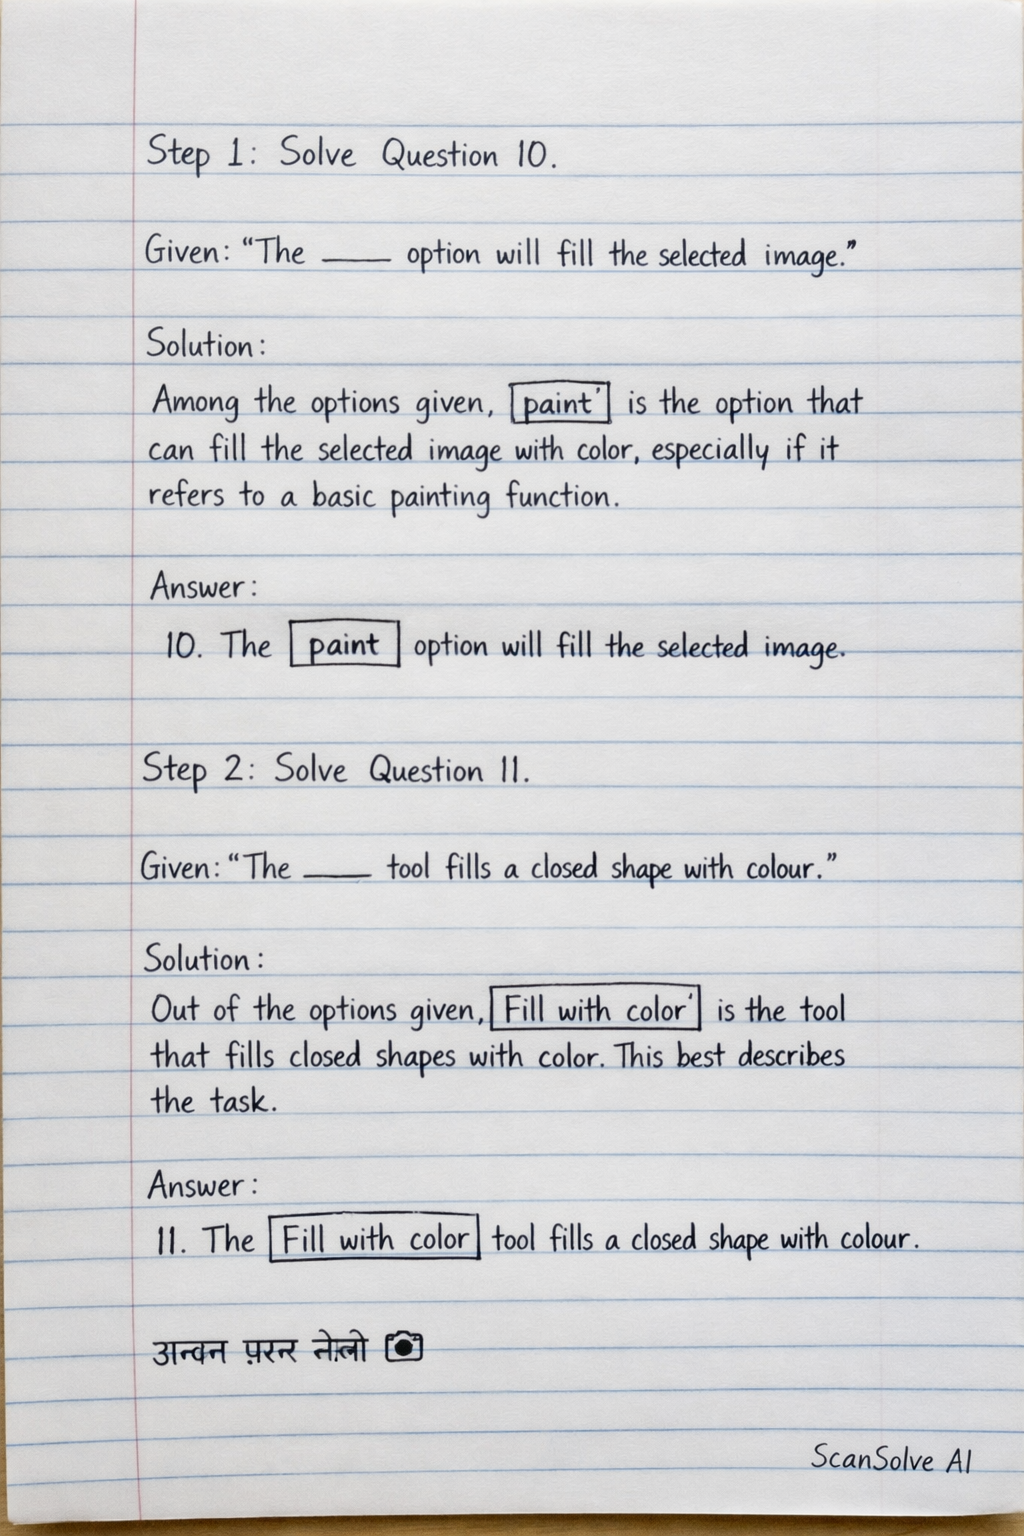 Step 1: Solve Question 10.
Given: “The ____ option will fill the selected image.”
Solution:
Among the options given, paint' is the option that
can fill the selected image with color, especially if it
refers to a basic painting function.
Answer:
10. The paint option will fill the selected image.
Step 2: Solve Question 11.
Given: “The ____ tool fills a closed shape with colour.”
Solution:
Out of the options given, Fill with color' is the tool
that fills closed shapes with color. This best describes
the task.
Answer:
11. The Fill with color tool fills a closed shape with colour.
ScanSolve AI